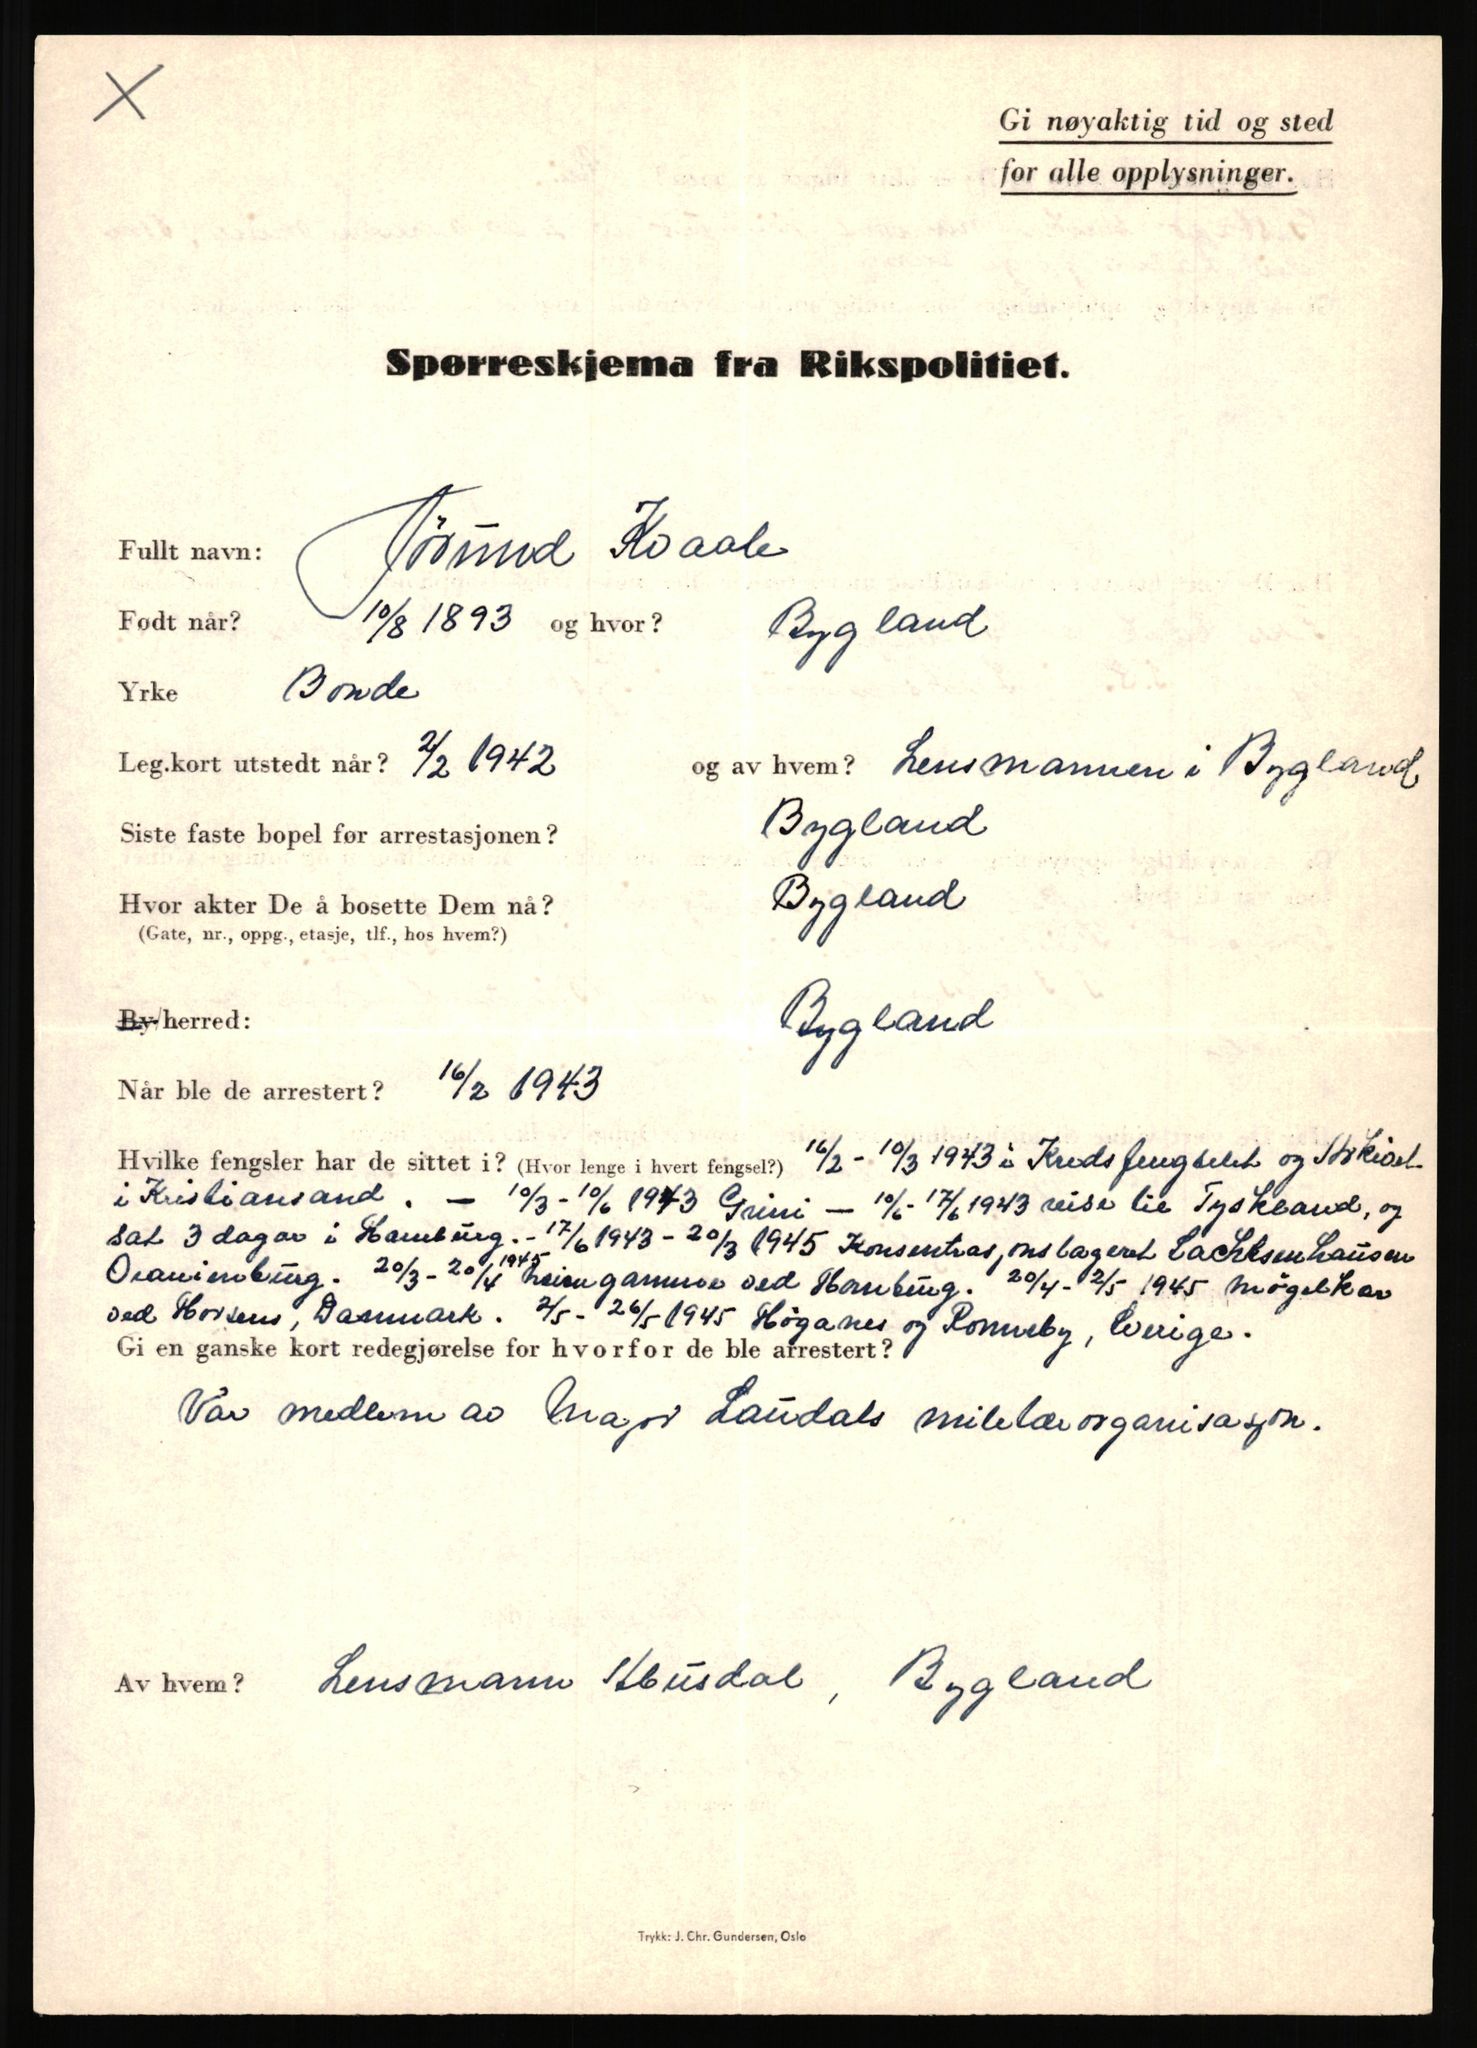 Gi nøyaktig tid og sted
for alle opplysninger.
Spørreskjema fra Rikspolitiet.
Fullt navn: Jörund Kvaale
Født når? 10/8 1893 og hvor? Bygland
Yrke Bonde
Leg.kort utstedt når? 2/2 1942 og av hvem? Lensmannen i Bygland
Siste faste bopel før arrestasjonen? Bygland
Hvor akter De å bosette Dem nå? Bygland
(Gate, nr., oppg., etasje, tlf., hos hvem?)
By/herred: Bygland
Når ble de arrestert? 16/2 1943
Hvilke fengsler har de sittet i? (Hvor lenge i hvert fengsel?) 16/2 - 10/3 1943 i Kredsfengselet og Arkivet
i Kristiansand. - 10/3 - 10/6 1943 Grini - 10/6 - 17/6 1943 reise til Tyskland, og
sat 3 dagar i Hamburg. - 17/6 1943 - 20/3 1945 Konsentrasjonslageret Sachsenhausen
Oranienburg. 20/3 - 20/4 1945 Neiengamme ved Hamburg. 20/4 - 2/5 1945 Møgelkær
ved Horsens, Danmark. 2/5 - 26/5 1945 Høganes og Ronneby, Sverige.
Gi en ganske kort redegjørelse for hvorfor de ble arrestert?
Var medlem av Major Laudals militærorganisasjon.
Av hvem? Lensmann Abusdal, Bygland
Trykk: J. Chr. Gundersen, Oslo